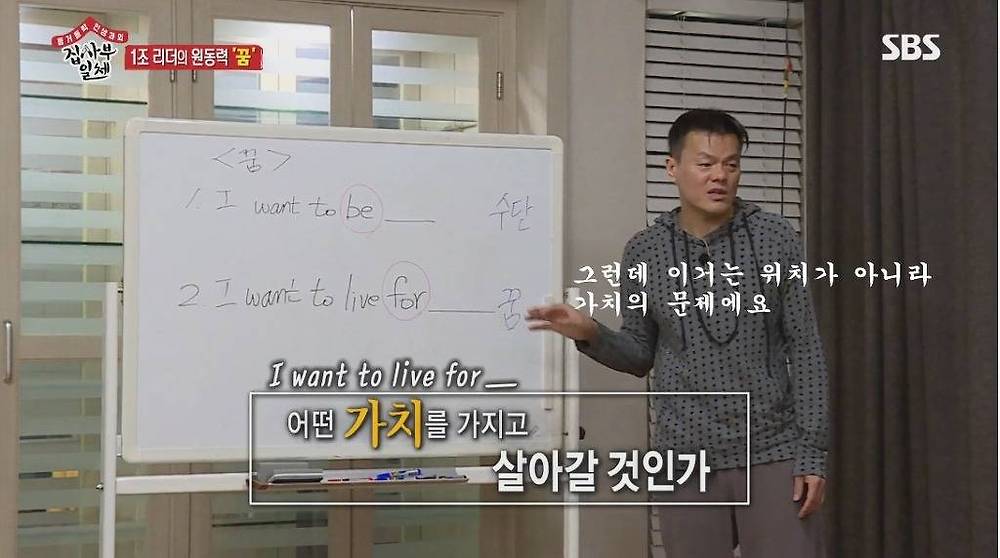 동거동락 인생과외
집사부
일체
1조 리더의 원동력 '꿈'
SBS
<꿈>
1. I want to be ___ 수단
2 I want to live for ___ 꿈
그런데 이거는 위치가 아니라
가치의 문제에요
I want to live for __
어떤 가치를 가지고
살아갈 것인가